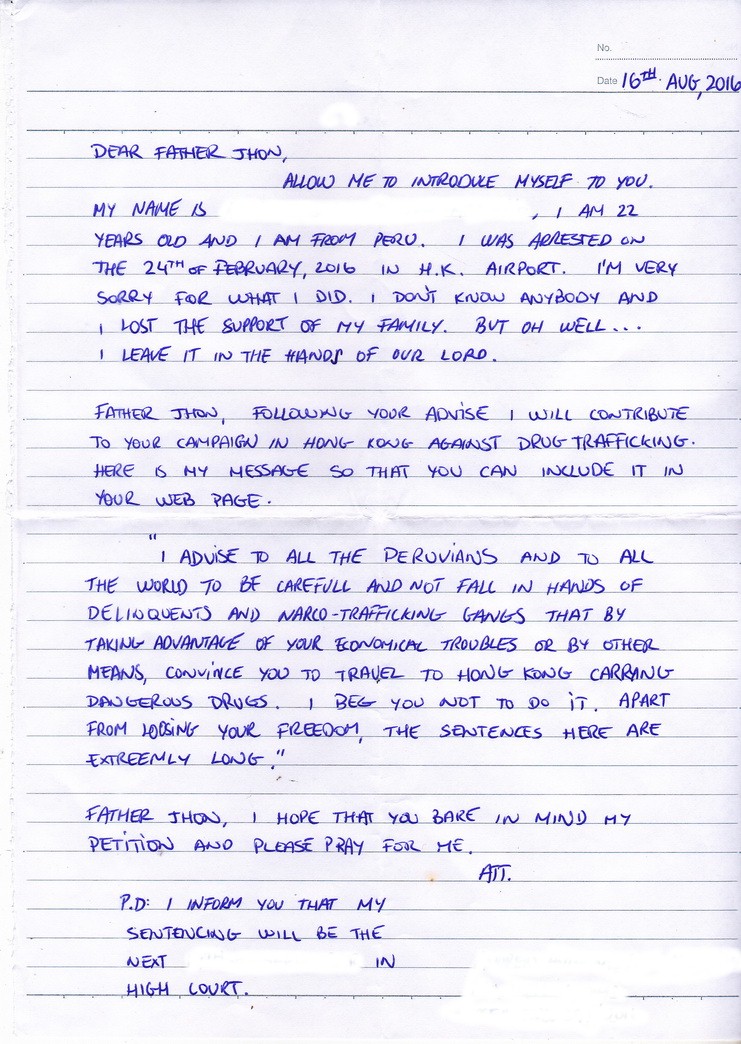 No.
Date 16TH. AUG, 2016
DEAR FATHER JHON,
ALLOW ME TO INTRODUCE MYSELF TO YOU.
MY NAME IS , I AM 22
YEARS OLD AND I AM FROM PERU. I WAS ARRESTED ON
THE 24TH OF FEBRUARY, 2016 IN H.K. AIRPORT. I'M VERY
SORRY FOR WHAT I DID. I DON'T KNOW ANYBODY AND
I LOST THE SUPPORT OF MY FAMILY. BUT OH WELL...
I LEAVE IT IN THE HANDS OF OUR LORD.
FATHER JHON, FOLLOWING YOUR ADVISE I WILL CONTRIBUTE
TO YOUR CAMPAIGN IN HONG KONG AGAINST DRUG TRAFFICKING.
HERE IS MY MESSAGE SO THAT YOU CAN INCLUDE IT IN
YOUR WEB PAGE.
" I ADVISE TO ALL THE PERUVIANS AND TO ALL
THE WORLD TO BE CAREFULL AND NOT FALL IN HANDS OF
DELINQUENTS AND NARCO-TRAFFICKING GANGS THAT BY
TAKING ADVANTAGE OF YOUR ECONOMICAL TROUBLES OR BY OTHER
MEANS, CONVINCE YOU TO TRAVEL TO HONG KONG CARRYNG
DANGEROUS DRUGS. I BEG YOU NOT TO DO IT. APART
FROM LOOSING YOUR FREEDOM, THE SENTENCES HERE ARE
EXTREEMLY LONG."
FATHER JHON, I HOPE THAT YOU BARE IN MIND MY
PETITION AND PLEASE PRAY FOR ME.
ATT.
P.D: I INFORM YOU THAT MY
SENTENCING WILL BE THE
NEXT IN
HIGH COURT.